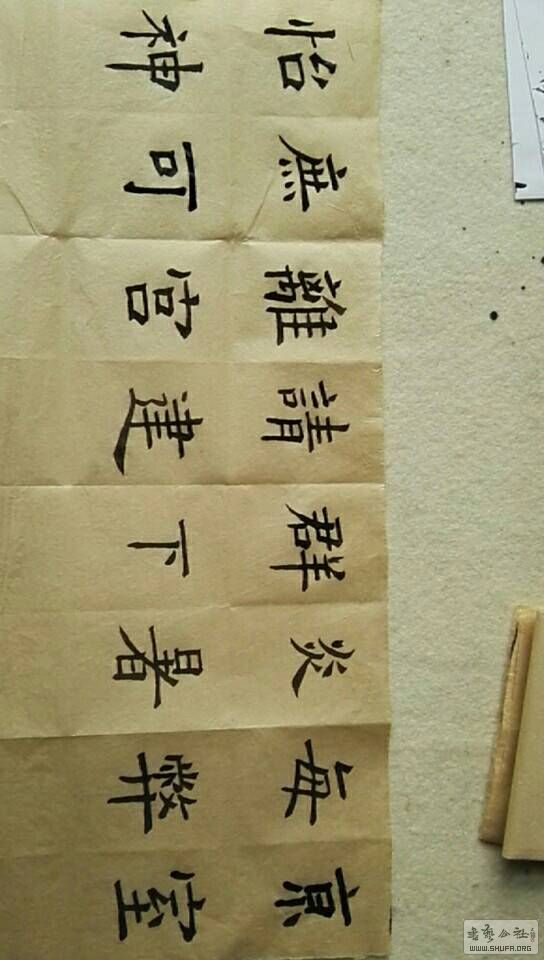 京室
每弊
炎暑
群下
請建
離宮
庶可
怡神
書藝公社
WWW.SHUFA.ORG